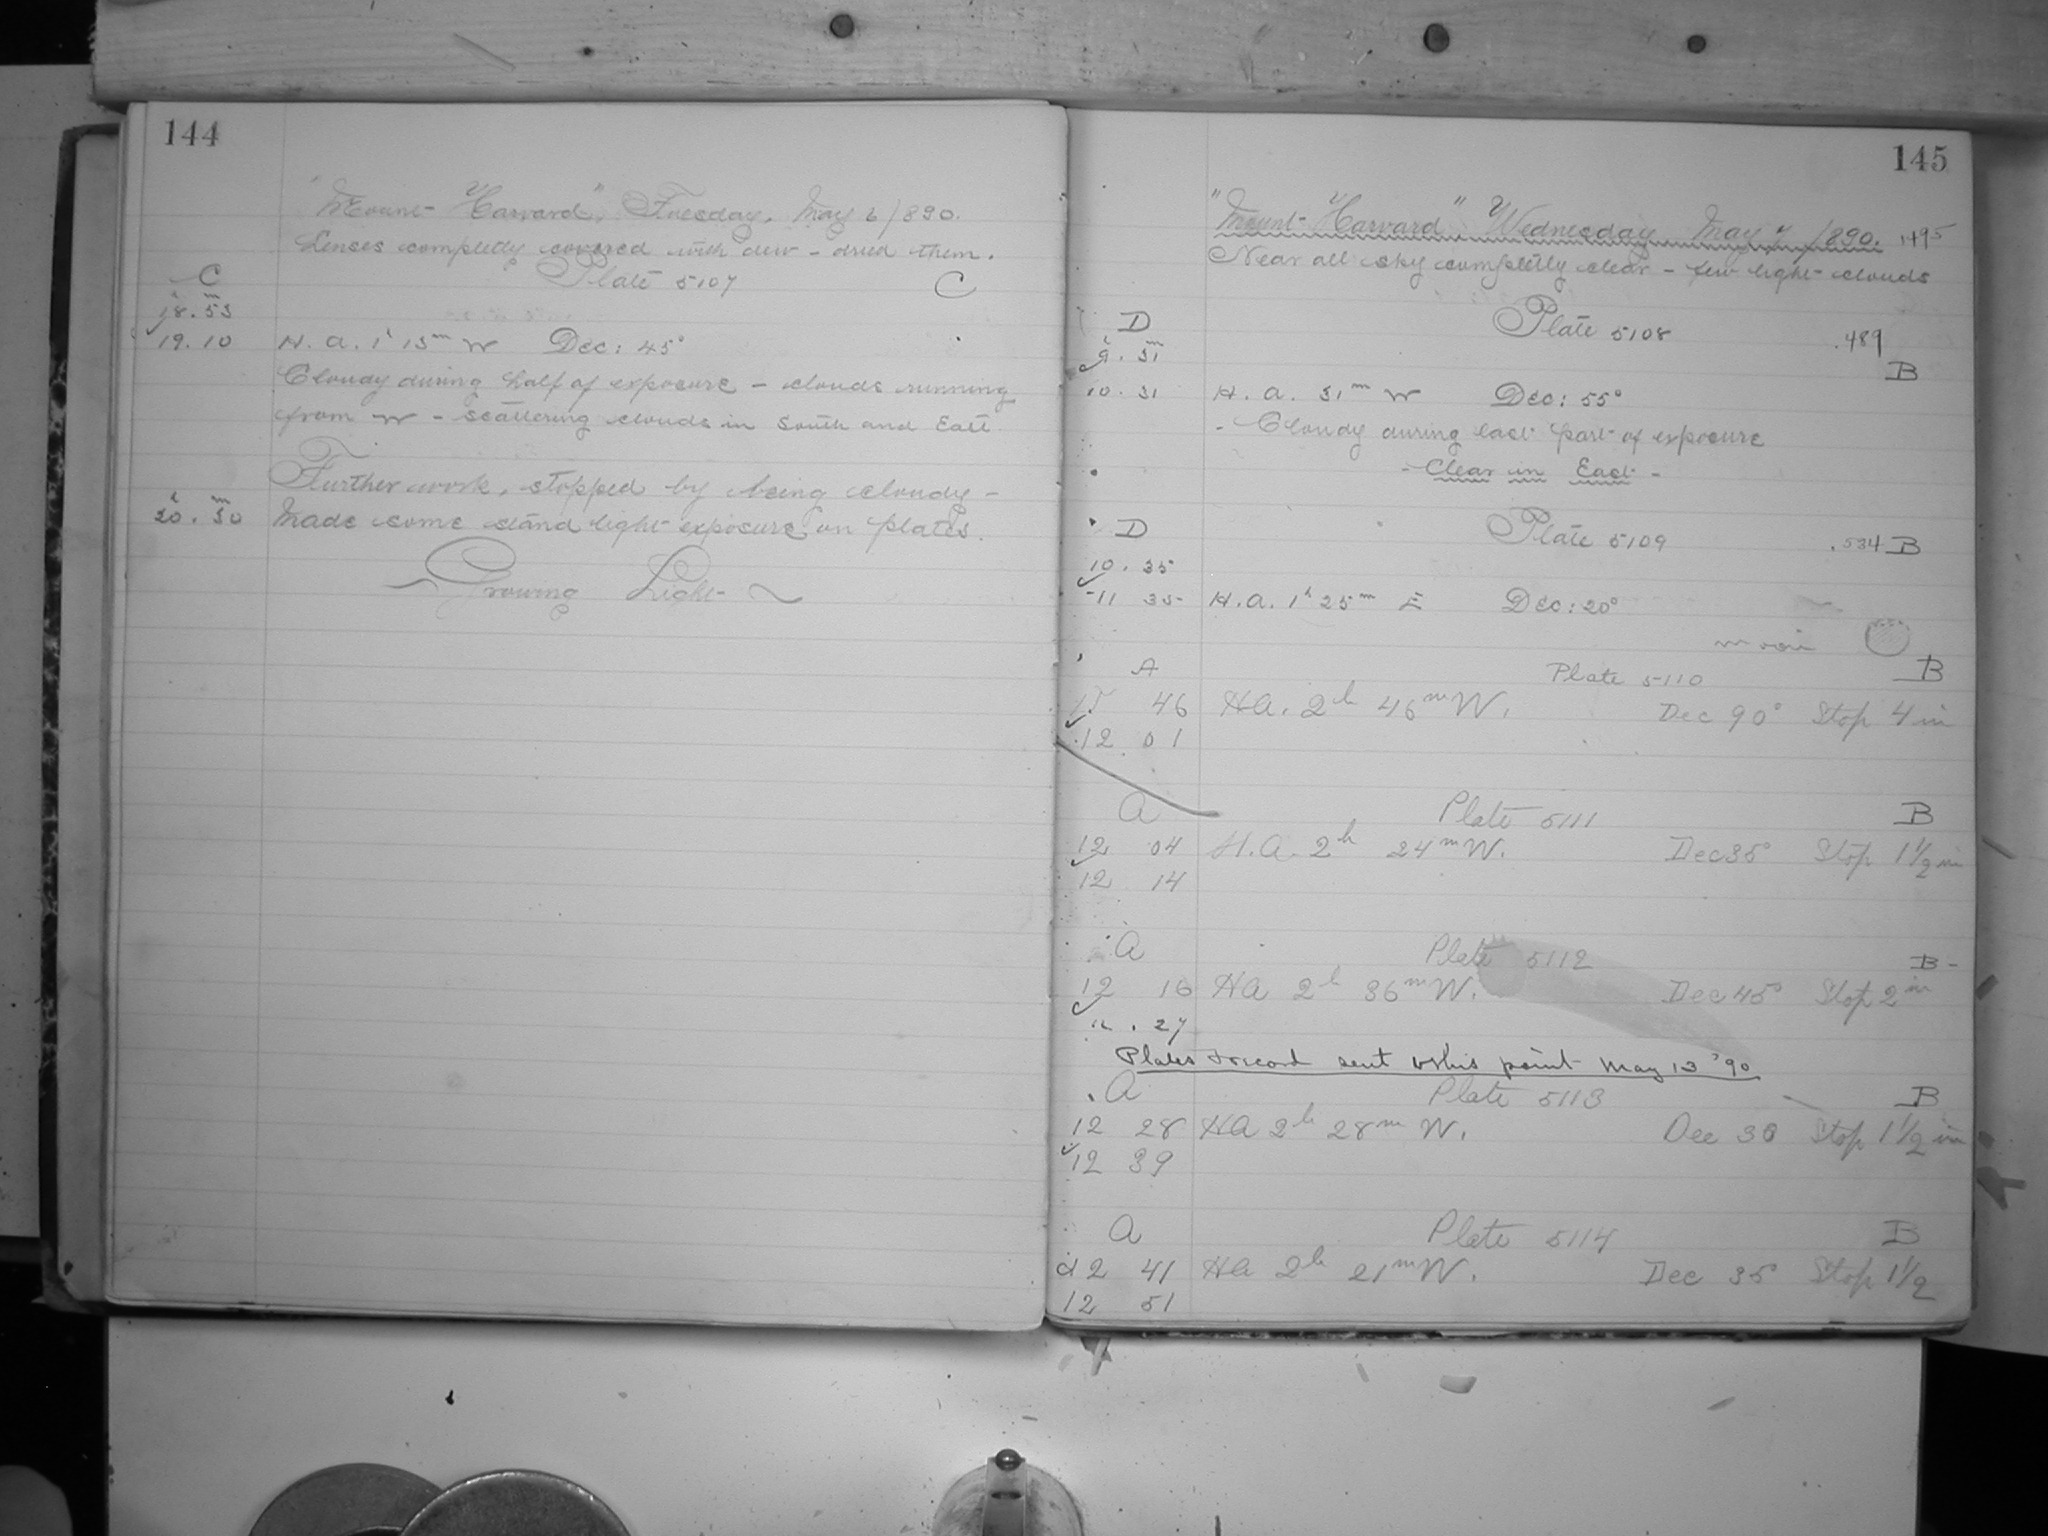 144
"Mount Harvard", Tuesday, May 6 1890.
Lenses completly covered with dew - dried them.
C Plate 5107 C
h m
18. 53
19. 10 H. a. 1h 13m W Dec: 45°
Cloudy during half of exposure - clouds running
from W - scattering clouds in South and East
Further work, stopped by being cloudy -
h m
20. 30 Made some stand light exposure on plates.
Growing Light
145
"Mount Harvard", Wednesday, May 7 1890. 1495
Near all sky completly clear - few light clouds
D Plate 5108 .489
h m
9. 31 B
10. 31 H. a. 31m W Dec: 55°
- Cloudy during last part of exposure
- Clear in East -
D Plate 5109 .534 B
10. 35
11 35 H.a. 1h 25m E Dec: 20°
moon
A Plate 5110 B
46 HA. 2h 46m W. Dec 90° Stop 4 in
12 01
A Plate 5111 B
12 04 H.A. 2h 24m W. Dec 35° Stop 1 1/2 in
12 14
A Plate 5112 B -
12 16 HA 2h 36m W. Dec 45° Stop 2 in
12. 27
Plates & record sent to this point May 13 '90
A Plate 5113 B
12 28 HA 2h 28m W. Dec 30 Stop 1 1/2 in
12 39
A Plate 5114 B
12 41 HA 2h 21m W. Dec 35 Stop 1 1/2
12 51